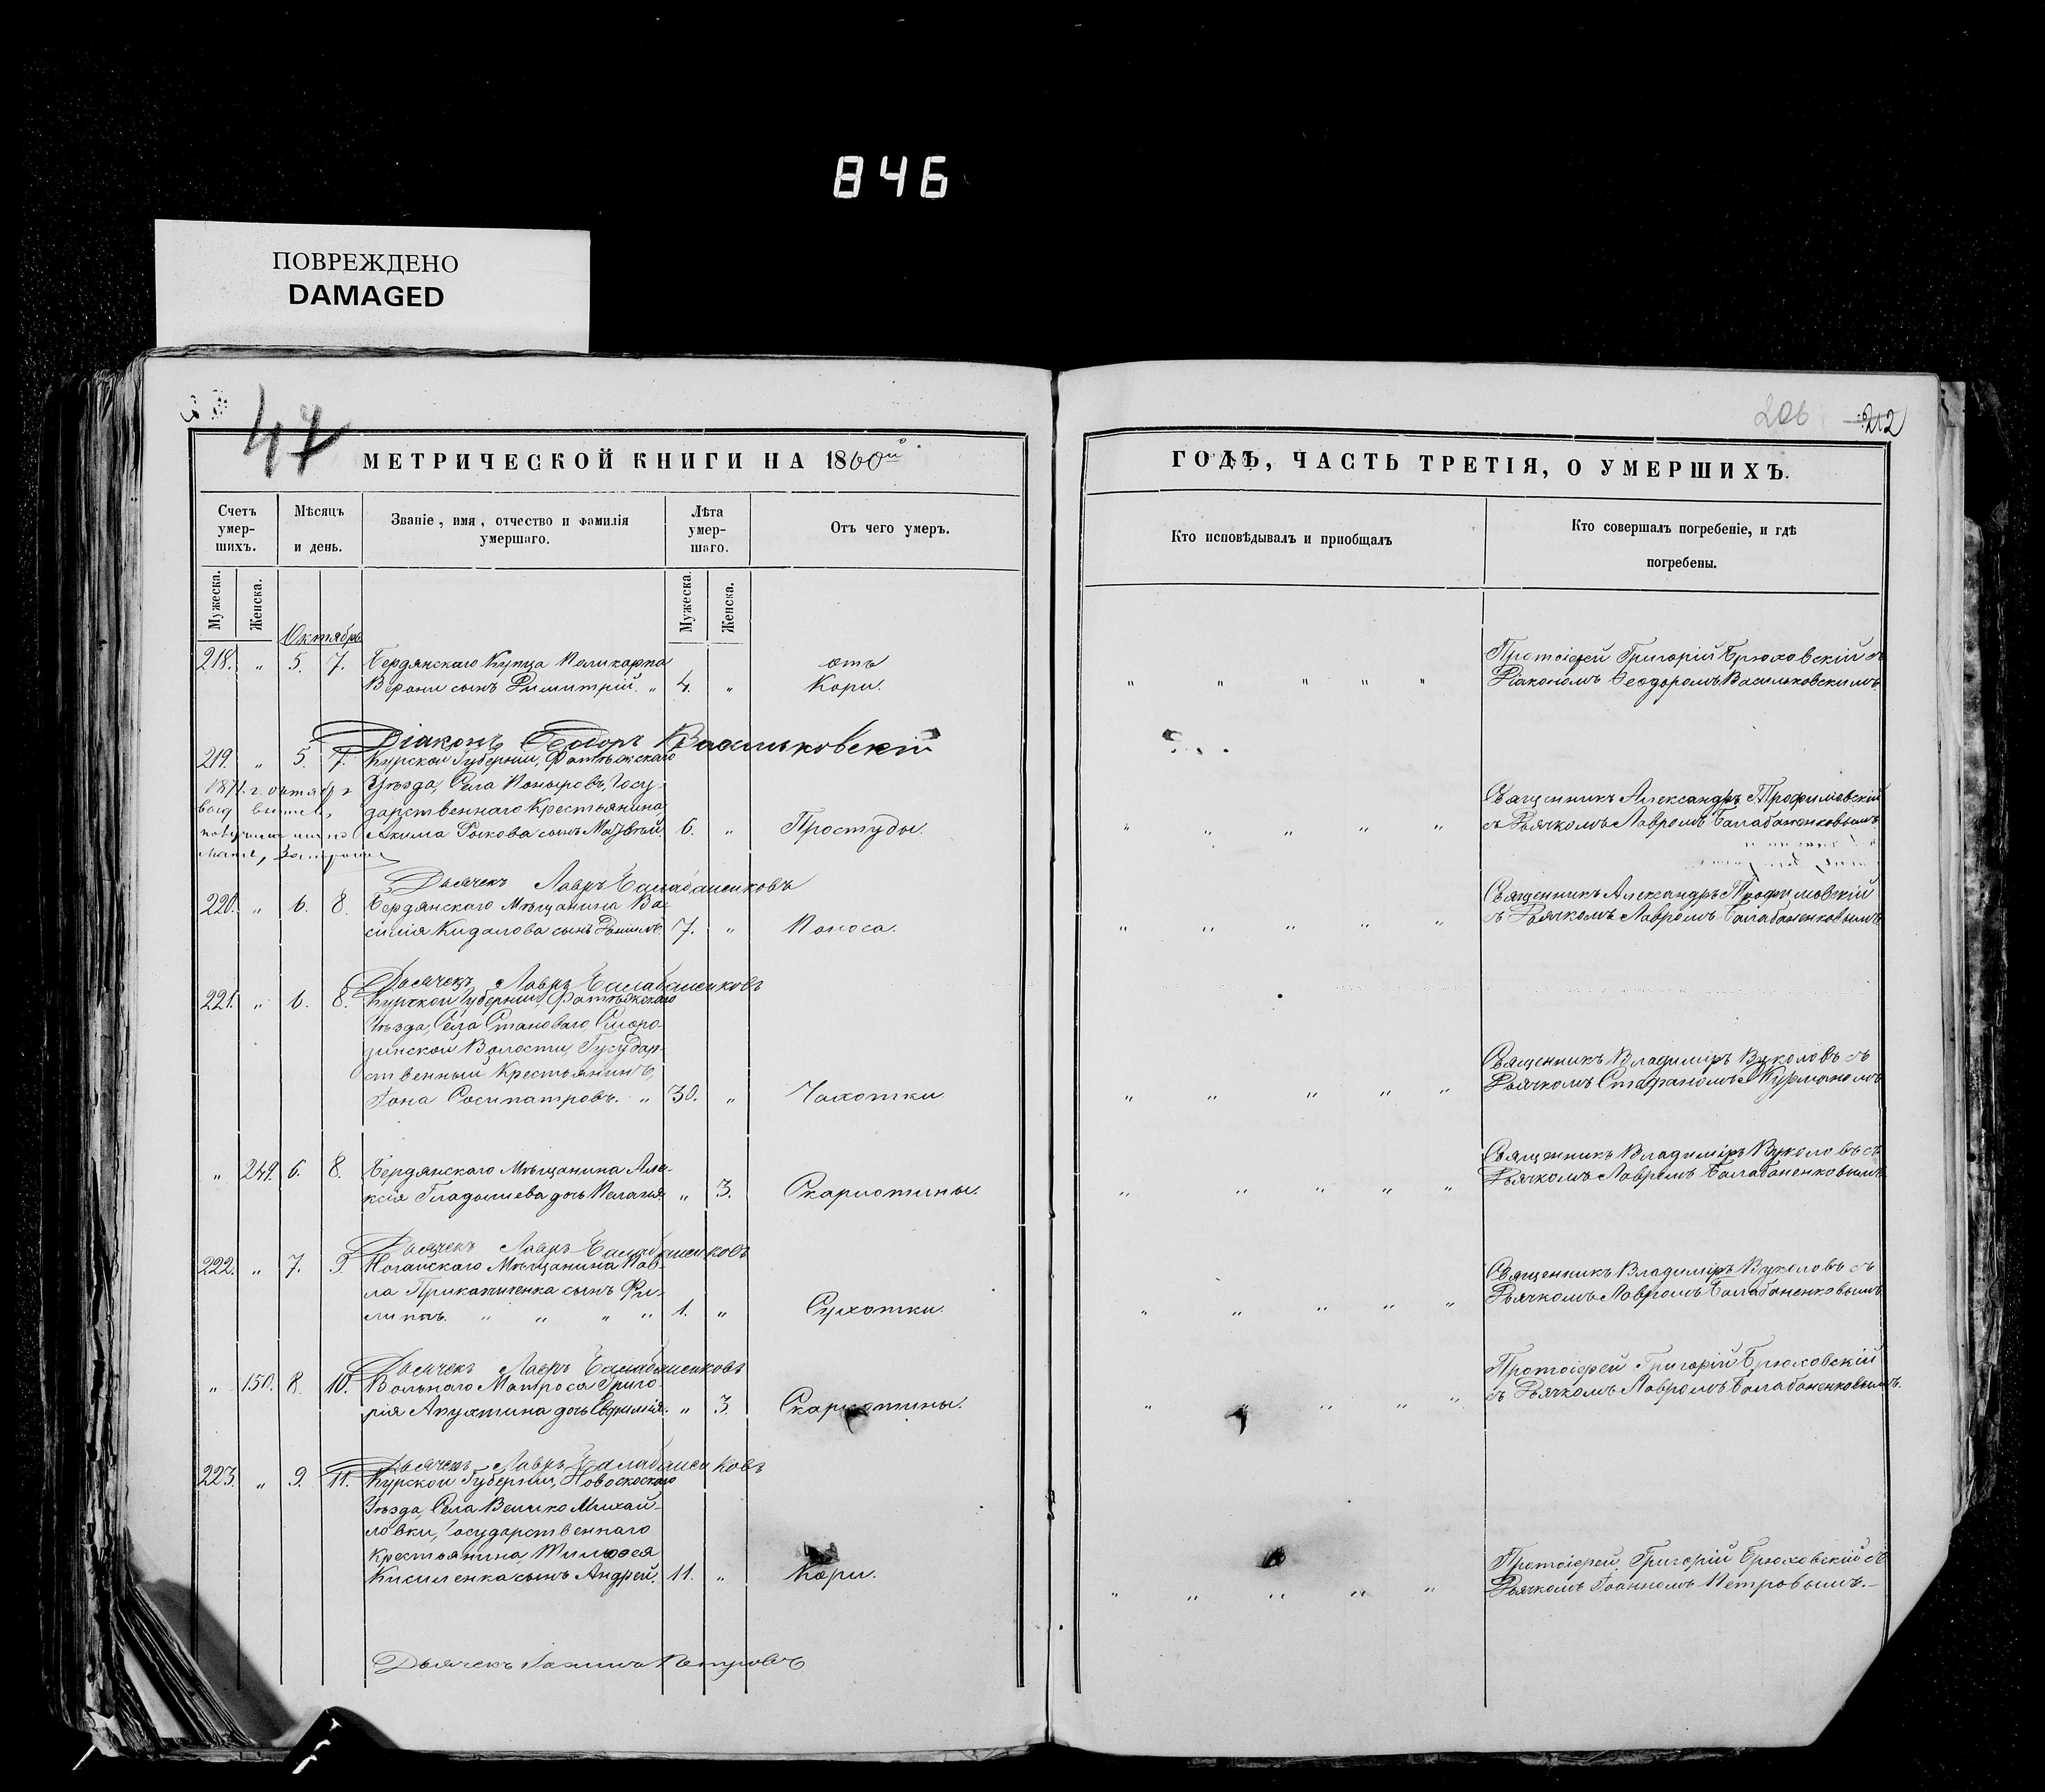 846
ПОВРЕЖДЕНО
DAMAGED
47
206 212
МЕТРИЧЕСКОЙ КНИГИ НА 1860й
Счетъ умер-шихъ.
Мѣсяцъ и день.
Званіе, имя, отчество и фамилія умершаго.
Лѣта умер-шаго.
Отъ чего умеръ.
Мужеска. Женска.
Мужеска. Женска.
Октябрь
218. " 5. 7. Бердянскаго Купца Поликарпа отъ
Верани сынъ Димитрій. " 4. " Кори.
Діаконъ Ѳеодоръ Васильковскій
219. " 5. 7. Курской Губерніи, Фатежскаго
1871 г. октября
Уѣзда, Села Поныровъ, Госу-
дарственнаго Крестьянина,
Акима Рыкова сынъ Матвѣй. 6. " Простуды.
Дьячекъ Лавръ Балабаненковъ
220. " 6. 8. Бердянскаго Мѣщанина Ва-
силія Кидалова сынъ 7. " Поноса.
Дьячекъ Лавръ Балабаненковъ
221. " 6. 8. Курской Губерніи, Фатежскаго
Уѣзда, Села Становаго, Сморо-
динской Волости, Государ-
ственный Крестьянинъ,
Іона Сосипатровъ. " 30. " Чахотки.
" 249. 6. 8. Бердянскаго Мѣщанина Але-
ксія Гладышева дочь Меланія. " 3. Скарлотины.
Дьячекъ Лавръ Балабаненковъ
222. " 7. 9. Ногайскаго Мѣщанина Пав-
ла сынъ Фи-
липпъ. " " " " 1. " Сухотки.
Дьячекъ Лавръ Балабаненковъ
" 150. 8. 10. Вольнаго Матроса Григо-
рія Апухтина дочь Евфимія. " 3. Скарлотины.
Дьячекъ Лавръ Балабаненковъ
223. " 9. 11. Курской Губерніи, Новоскольскаго
Уѣзда, Села Велико Михай-
ловки, Государственнаго
Крестьянина Тимоѳея
Кисиленка сынъ Андрей. 11. " Кори.
Дьячекъ Іоаннъ Петровъ
ГОДЪ, ЧАСТЬ ТРЕТІЯ, О УМЕРШИХЪ.
Кто исповѣдывалъ и пріобщалъ
Кто совершалъ погребеніе, и гдѣ погребены.
Протоіерей Григорій Брюховскій съ
" " " " " Діакономъ Ѳеодоромъ Васильковскимъ
Священникъ Александръ Трофимовскій
" " " " " съ Дьячкомъ Лавромъ Балабаненковымъ
Священникъ Александръ Трофимовскій
" " " " " съ Дьячкомъ Лавромъ Балабаненковымъ
Священникъ Владиміръ Вуколовъ съ
" " " " " Дьячкомъ Стефаномъ Журманомъ
Священникъ Владиміръ Вуколовъ съ
" " " " " Дьячкомъ Лавромъ Балабаненковымъ
Священникъ Владиміръ Вуколовъ съ
" " " " " Дьячкомъ Лавромъ Балабаненковымъ
Протоіерей Григорій Брюховскій
" " " " " съ Дьячкомъ Лавромъ Балабаненковымъ.
Протоіерей Григорій Брюховскій съ
" " " " " Дьячкомъ Іоанномъ Петровымъ.